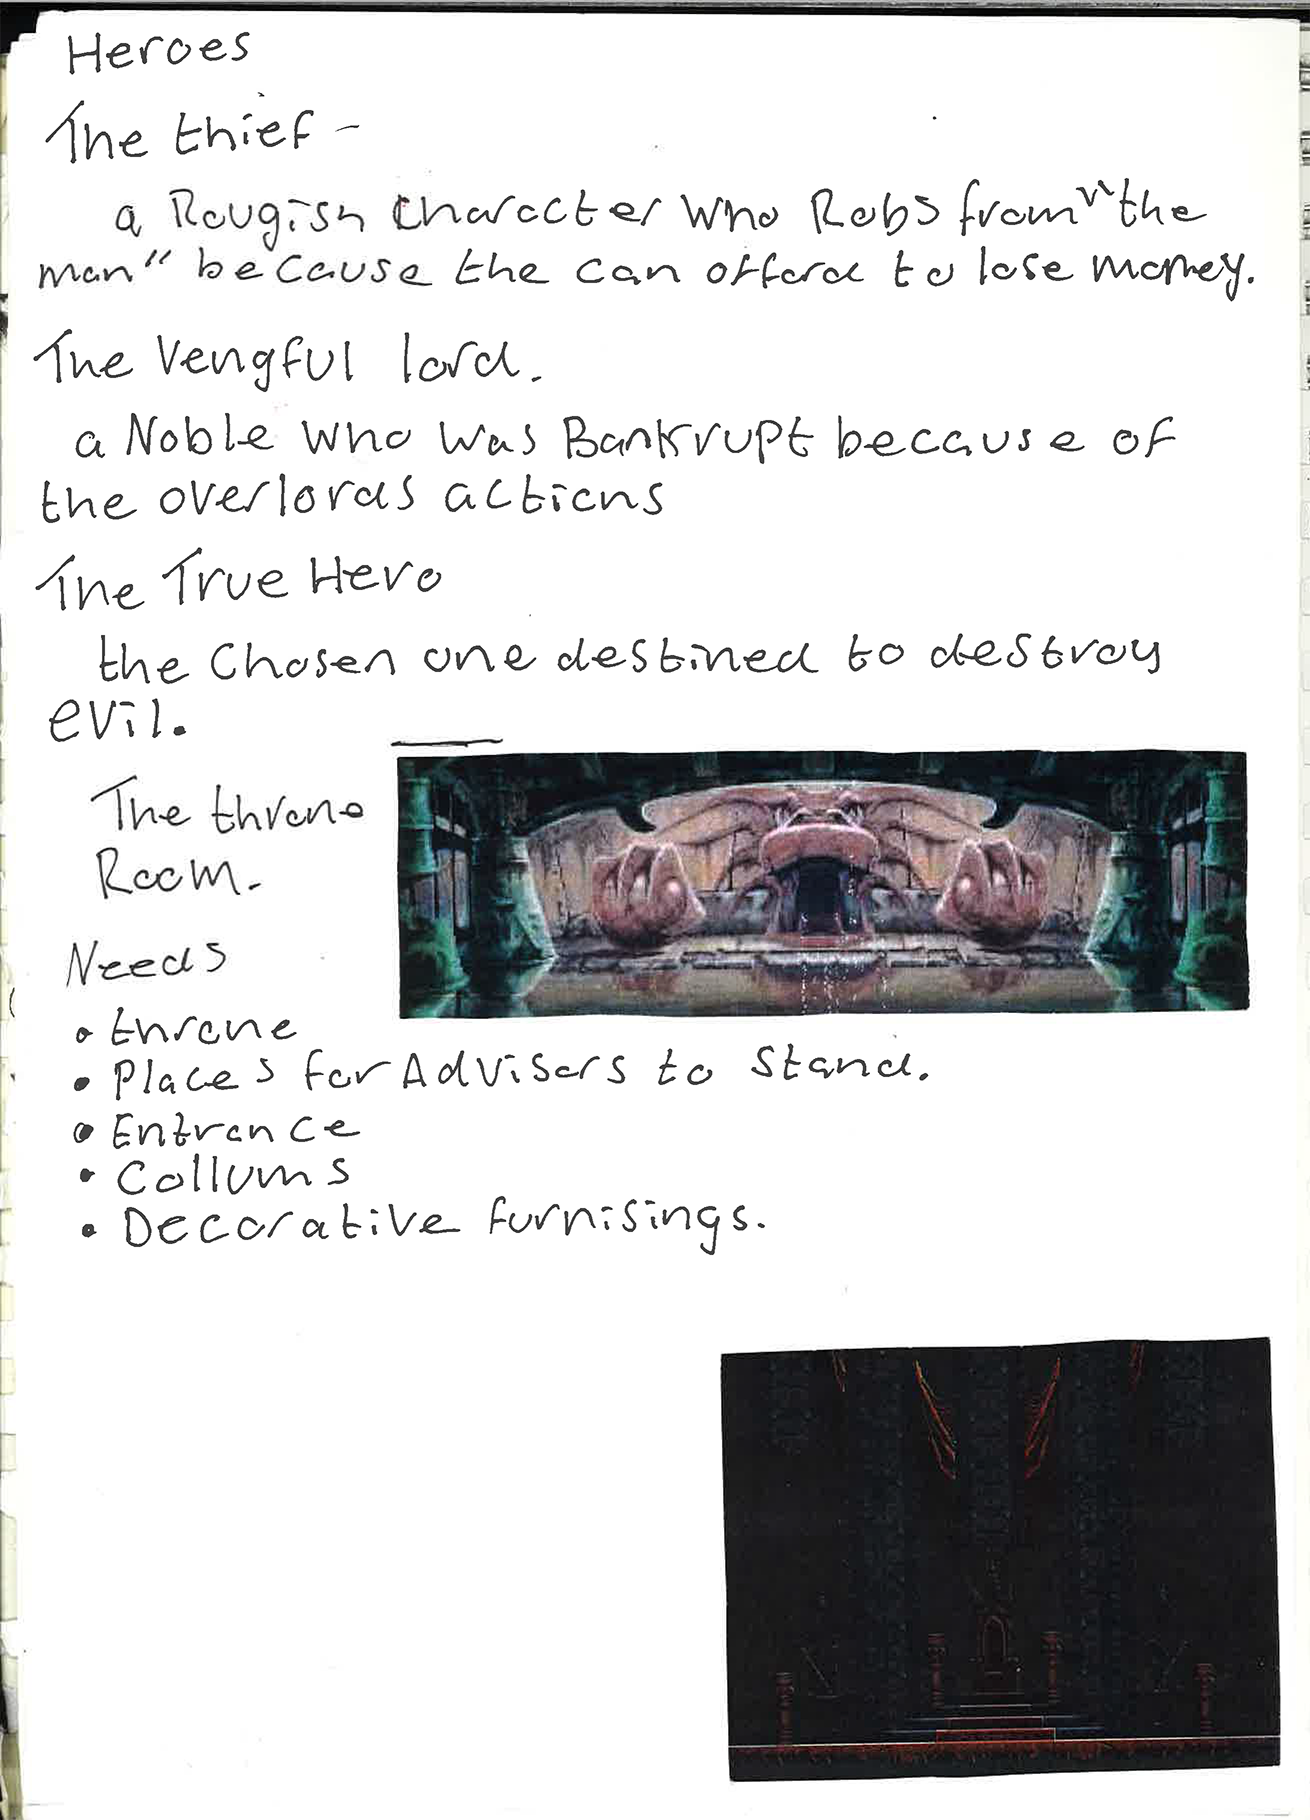 Heroes
The thief -
a Rougish character who Robs from "the
man" because the can afford to lose money.
The Vengful lord.
a Noble who was Bankrupt because of
the overlords actions
The True Hero
the Chosen one destined to destroy
evil.
The throne
Room.
Needs
• throne
• Places for Advisors to Stand.
• Entrance
• Collums
• Decorative furnisings.